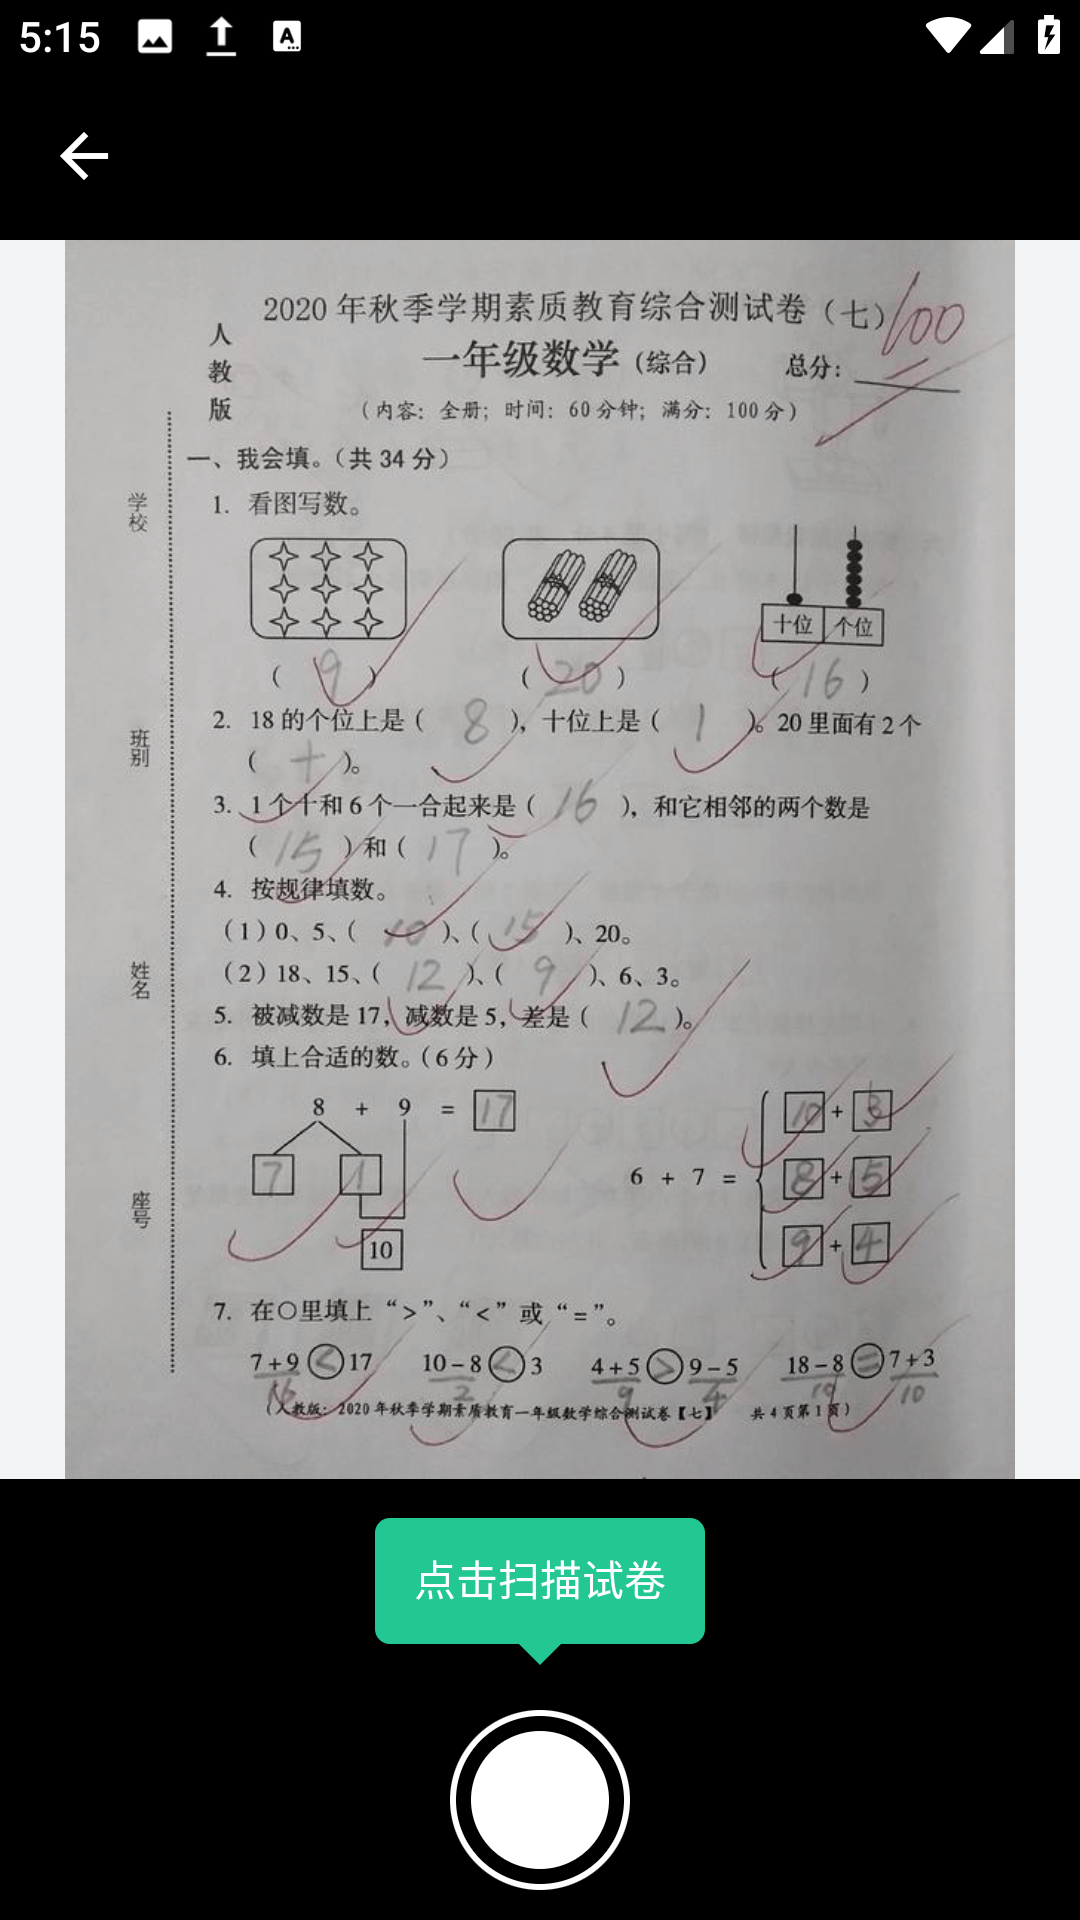 5:15
A
2020年秋季学期素质教育综合测试卷（七）
100
人教版
一年级数学（综合）
总分：
（内容：全册；时间：60分钟；满分：100分）
学校
班别
姓名
座号
一、我会填。（共34分）
1. 看图写数。
十位 个位
（ 9 ） （ 20 ） （ 16 ）
2. 18的个位上是（ 8 ），十位上是（ 1 ）。20里面有2个
（ 十 ）。
3. 1个十和6个一合起来是（ 16 ），和它相邻的两个数是
（ 15 ）和（ 17 ）。
4. 按规律填数。
（1）0、5、（ 10 ）、（ 15 ）、20。
（2）18、15、（ 12 ）、（ 9 ）、6、3。
5. 被减数是17，减数是5，差是（ 12 ）。
6. 填上合适的数。（6分）
8 + 9 = 17
7 1
10
6 + 7 =
10 + 3
8 + 5
9 + 4
7. 在○里填上“>”、“<”或“=”。
7+9<17 10-8<3 4+5>9-5 18-8=7+3
16 2 9 4 10 10
（人教版：2020年秋季学期素质教育一年级数学综合测试卷【七】 共4页第1页）
点击扫描试卷